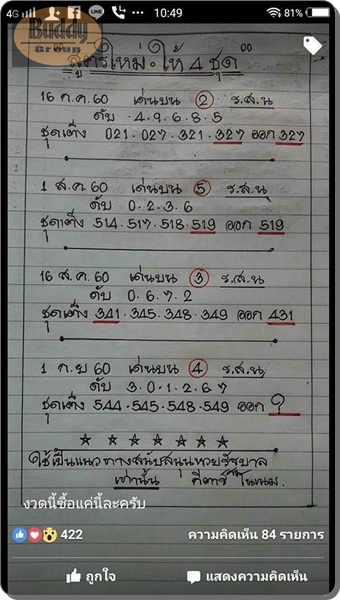 4G LINE 10:49 81%
Buddy
Group
สูตรใหม่ให้ 4 ชุด
16 ก.ค. 60 เด่นบน 2 ร.ส.น
ดับ 4.9.6.8.5
ชุดเต็ง 021.027.321.327 ออก 327
1 ส.ค. 60 เด่นบน 5 ร.ส.น
ดับ 0.2.3.6
ชุดเต็ง 514.517.518.519 ออก 519
16 ส.ค. 60 เด่นบน 3 ร.ส.น
ดับ 0.6.7.2
ชุดเต็ง 341.345.348.349 ออก 431
1 ก.ย 60 เด่นบน 4 ร.ส.น
ดับ 3.0.1.2.6.7
ชุดเต็ง 544.545.548.549 ออก ?
ใช้เป็นแนวทางสนับสนุนหวยรัฐบาล
เท่านั้น
งวดนี้ซื้อแค่นี้ละครับ
422 ความคิดเห็น 84 รายการ
ถูกใจ แสดงความคิดเห็น